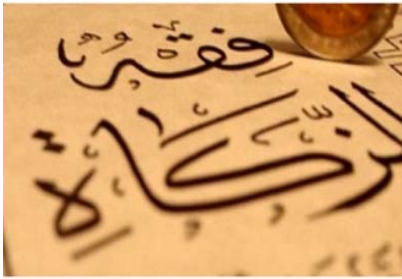 فقه
الزَّكَاة